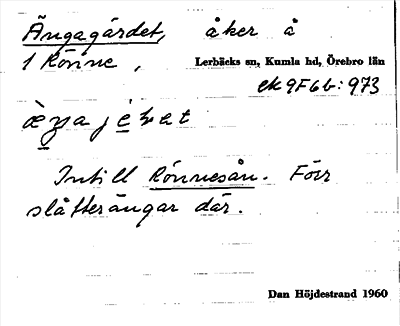 Ängagärdet, åker å
1 Rönne, Lerbäcks sn, Kumla hd, Örebro län
ek 9F6b:973
Intill Rönnesån. Förr
slåtterängar där.
Dan Höjdestrand 1960